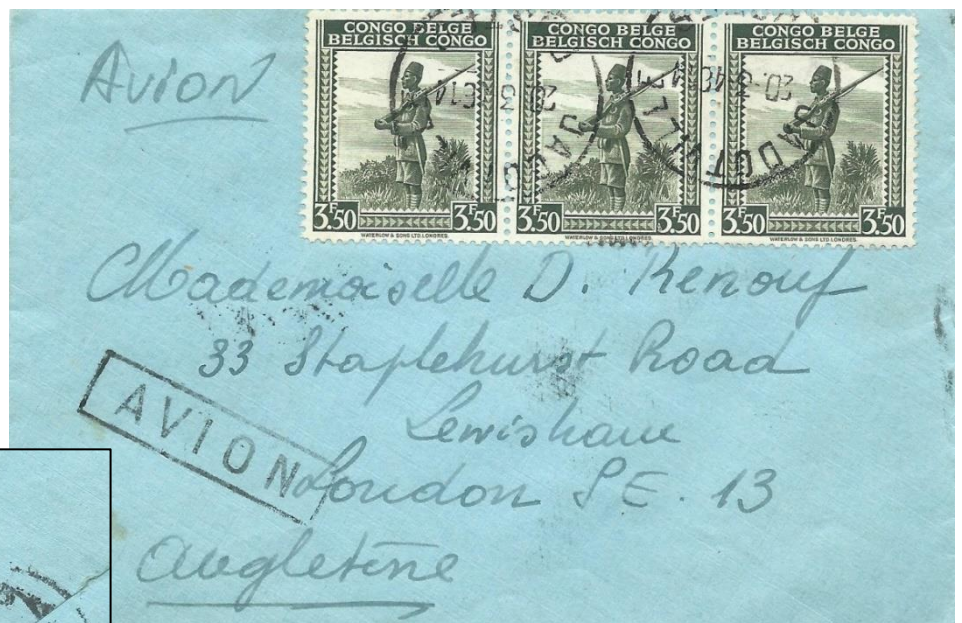 Avion
CONGO BELGE
BELGISCH CONGO
3F50 3F50
WATERLOW & SONS LTD. LONDRES.
CONGO BELGE
BELGISCH CONGO
3F50 3F50
WATERLOW & SONS LTD. LONDRES.
CONGO BELGE
BELGISCH CONGO
3F50 3F50
WATERLOW & SONS LTD. LONDRES.
Mademoiselle D. Renouf
33 Staplehurst Road
Lewisham
London S E. 13
Angleterre
AVION